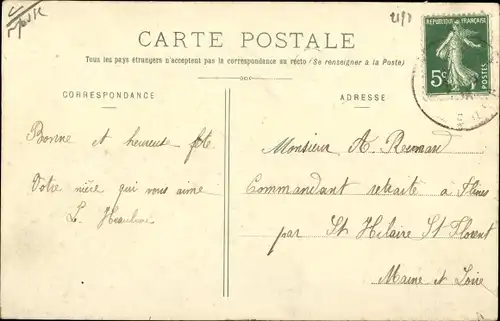 CARTE POSTALE
Tous les pays étrangers n'acceptent pas la correspondance au recto (Se renseigner à la Poste)
CORRESPONDANCE
Bonne et heureuse fête
Votre nièce qui vous aime
L.
ADRESSE
Monsieur A.
Commandant retraité à
par St Hilaire St Florent
Maine et Loire
REPUBLIQUE FRANÇAISE
5c
POSTES